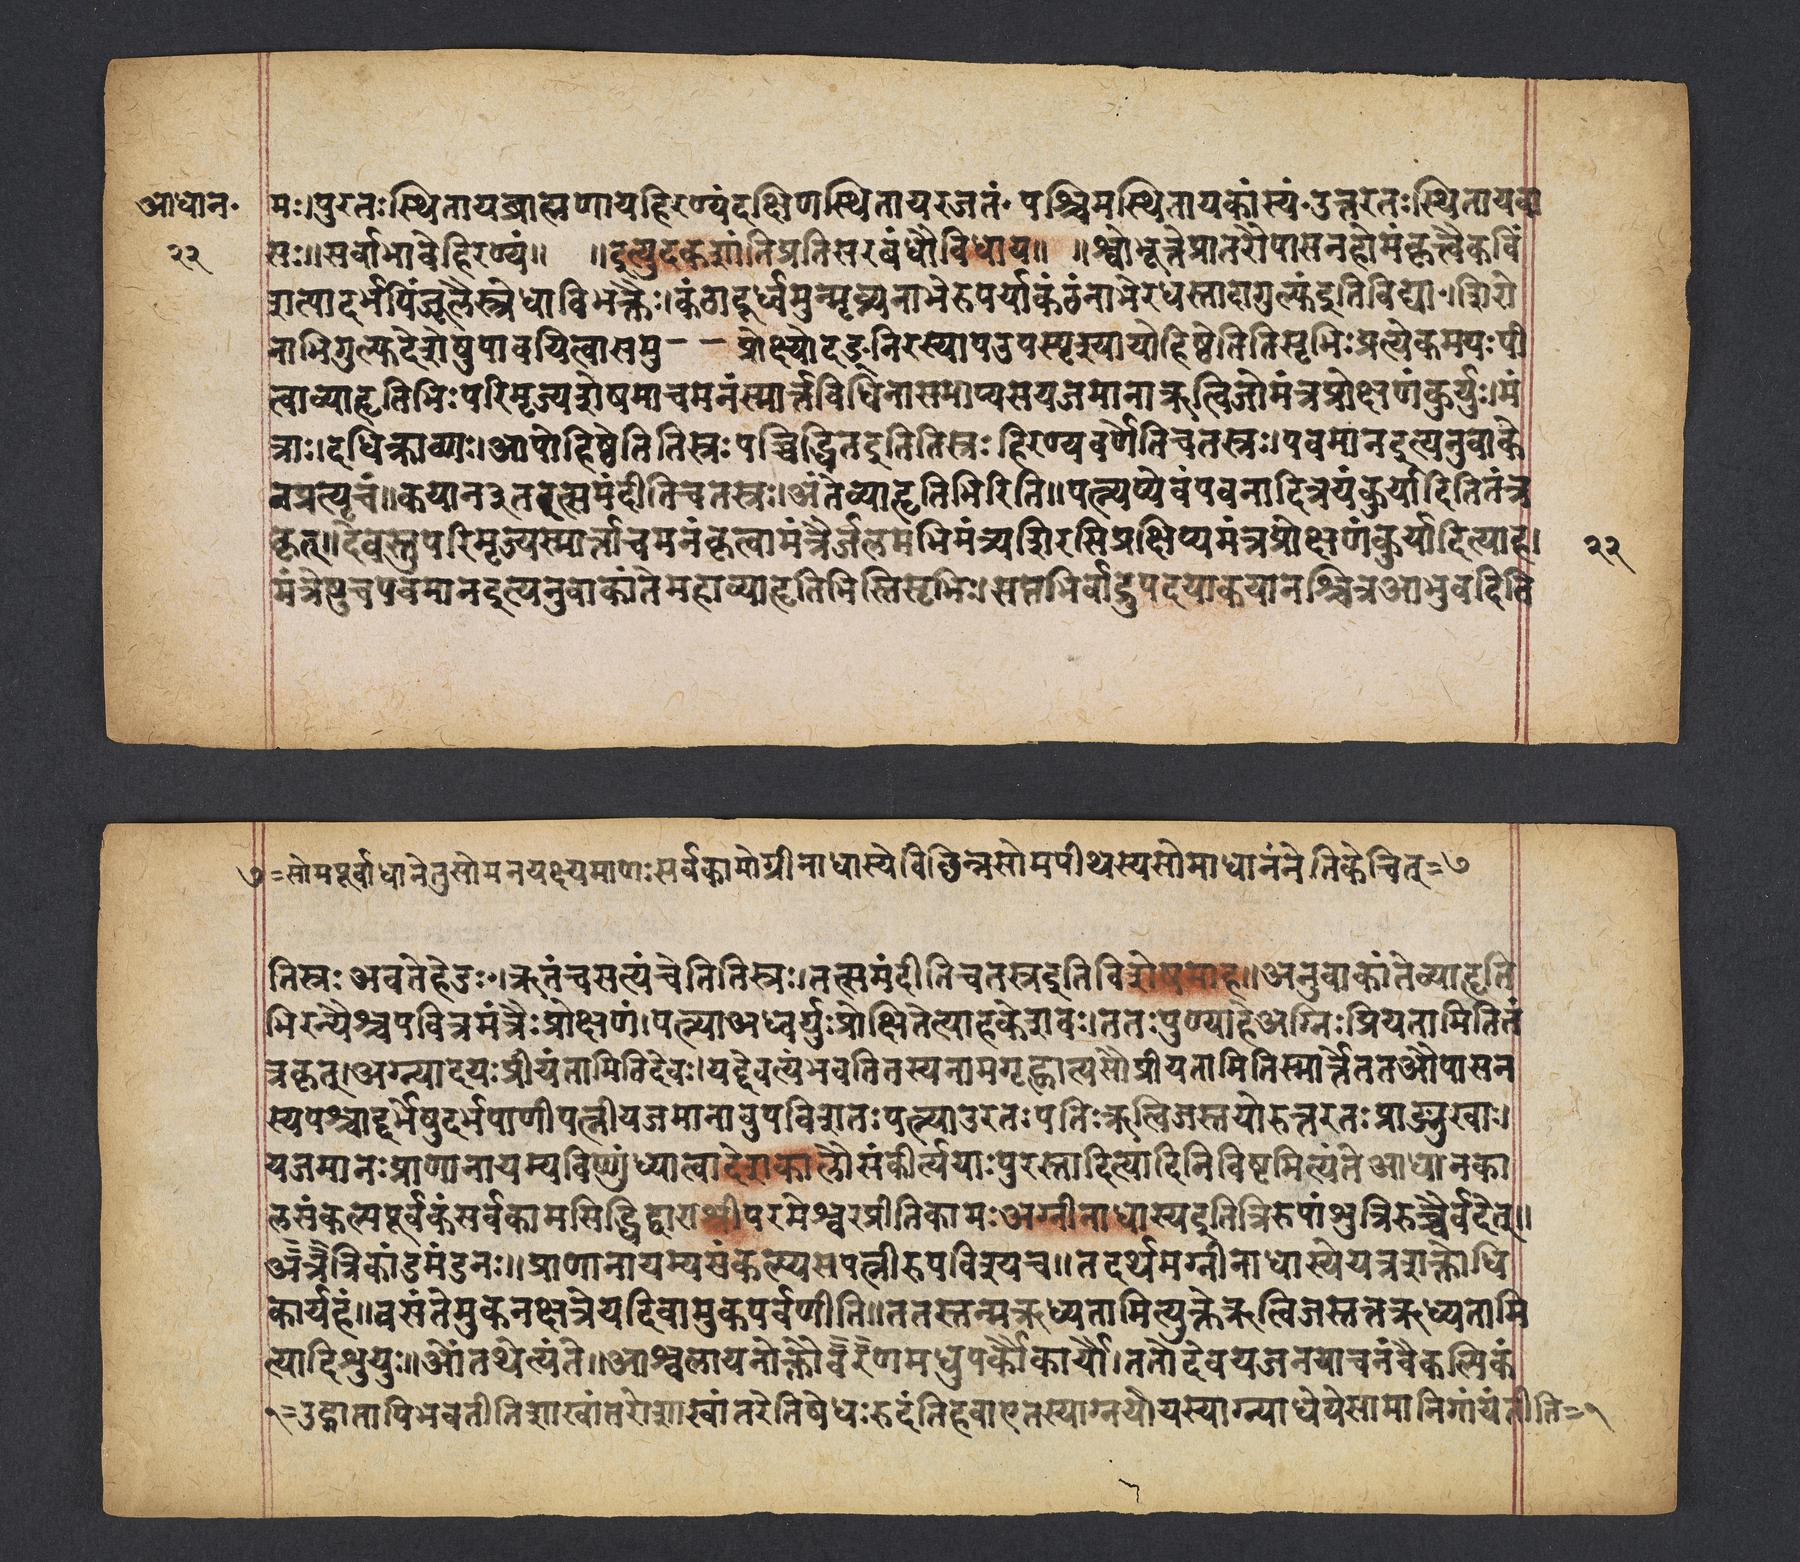 आधान॰
२२
मः।पुरतःस्थितायब्राह्मणायहिरण्यंदक्षिणस्थितायरजतं॰पश्चिमस्थितायकांस्यं॰उत्तरतःस्थितायवा
सः॥सर्वाभावेहिरण्यं॥ ॥इत्युदकशांतिप्रतिसरबंधौविधाय॥ ॥श्वोभूतेप्रातरौपासनहोमंकृत्वैकविं
शत्यादर्भपिंजूलैस्त्रेधाविभक्तैः।कंठादूर्ध्वमुन्मृज्यनाभेरुपर्याकंठंनाभेरधस्तादागुल्फंइतिविद्या॰।शिरो
नाभिगुल्फदेशेषुपावयित्वासमु-- प्रोक्ष्योदङ्निरस्यापउपस्पृश्यापोहिष्ठेतितिसृभिःप्रत्येकमपःपी
त्वाव्याहृतिभिःपरिमृज्यशेषमाचमनंस्मार्त्तविधिनासमाप्यसयजमानाऋत्विजोमंत्रप्रोक्षणंकुर्युः।मं
त्राः।दधिक्राव्णः।आपोहिष्ठेतितिस्रःपच्चिद्धितइतितिस्रःहिरण्यवर्णेतिचतस्रः।पवमानइत्यनुवाके
नप्रत्यृचं॥कयान३तत्सत्समंदीतिचतस्रः।अंतेव्याहृतिभिरिति॥पत्न्यप्येवंपवनादित्रयंकुर्यादितितंत्र
कृत्॥देवस्तुपरिमृज्यस्मार्त्ताचमनंकृत्वामंत्रैर्जलमभिमंत्र्यशिरसिप्रक्षिप्यमंत्रप्रोक्षणंकुर्यादित्याह।
मंत्रेषुचपवमानइत्यनुवाकांतेमहाव्याहृतिभिस्तिसृभिः।सप्तभिर्वाद्रुपदयाकयानश्चित्रआभुवदिति
२२
७=सोमपूर्वाधानेतुसोमनयक्ष्यमाणःसर्वकामोग्रीनाधास्येविछिन्नसोमपीथस्यसोमाधानंनेतिकेचित्=७
तिस्रःअवतेहेडः॰।ऋतंचसत्यंचेतितिस्रः।तत्समंदीतिचतस्रइतिविशेषमाह॥अनुवाकांतेव्याहृति
भिरन्यैश्चपवित्रमंत्रैःप्रोक्षणं।पत्न्याअध्वर्युःप्रोक्षितेत्याहकेशवः।ततःपुण्याहेअग्निःप्रियतामितितं
त्रकृत्।अग्न्यादयःप्रीयंतामितिदेवः।यद्देवत्यंभवतितस्यनामगृह्णात्यसौप्रीयतामितिस्मार्त्तेततऔपासन
स्यपश्चाद्दर्भेषुदर्भपाणीपत्नीयजमानावुपविशतःपत्न्याउरतःपतिःऋत्विजस्तयोरुत्तरतःप्राङ्मुखाः।
यजमानःप्राणानायम्यविष्णुंध्यात्वादेशकालौसंकीर्त्ययाःपुरस्तादित्यादिनिविष्टमित्यंतेआधानका
लसंकल्पपूर्वकंसर्वकामसिद्धिद्वाराश्रीपरमेश्वरप्रीतिकामःअग्नीनाधास्यइतित्रिरुपांशुत्रिरुच्चैर्वदेत्॥
अत्रत्रिकांडमंडनः॥प्राणानायम्यसंकल्प्यसपत्नीरुपविश्यच॥तदर्थमग्नीनाधास्येयत्रशक्तोधि
कार्यहं॥वसंतेमुकनक्षत्रेयदिवामुकपर्वणीति॥ततस्तन्मऋध्यतामित्युक्तेऋत्विजस्तत्तऋध्यतामि
त्यादिश्रुयुः॥ओंतथेत्यंते॥आश्वलायनोक्तौवरणमधुपर्कौकार्यौ।ततोदेवयजनयाचनंवैकल्पिकं
९=उद्गातापिभवतीतिशाखांतरेशाखांतरेनिषेधःरुदंतिहवाएतस्याग्नयोयस्याग्न्याधेयेसामानिगायंतीति=९